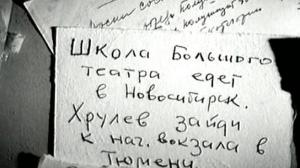 Школа Большого
театра едет
в Новосибирск.
Хрулев зайди
к нач. вокзала в
Тюмени